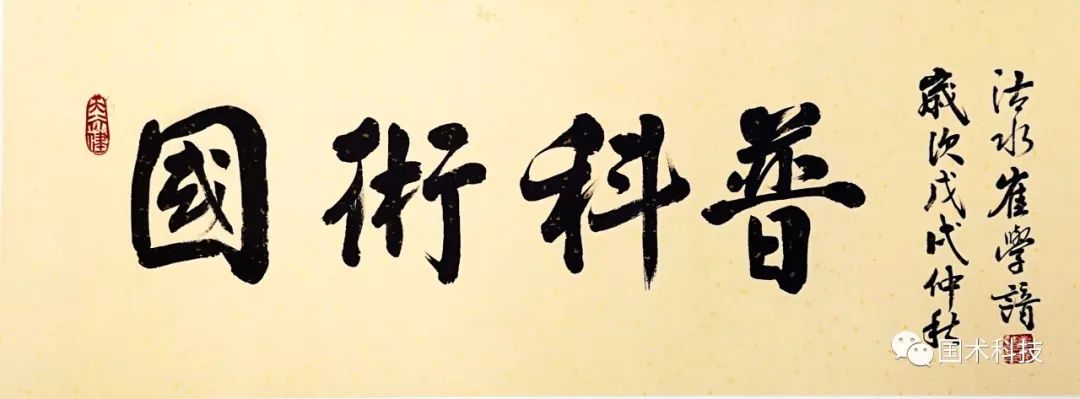 國術科普
歲次戊戌仲秋
沽水崔學諳
国术科技